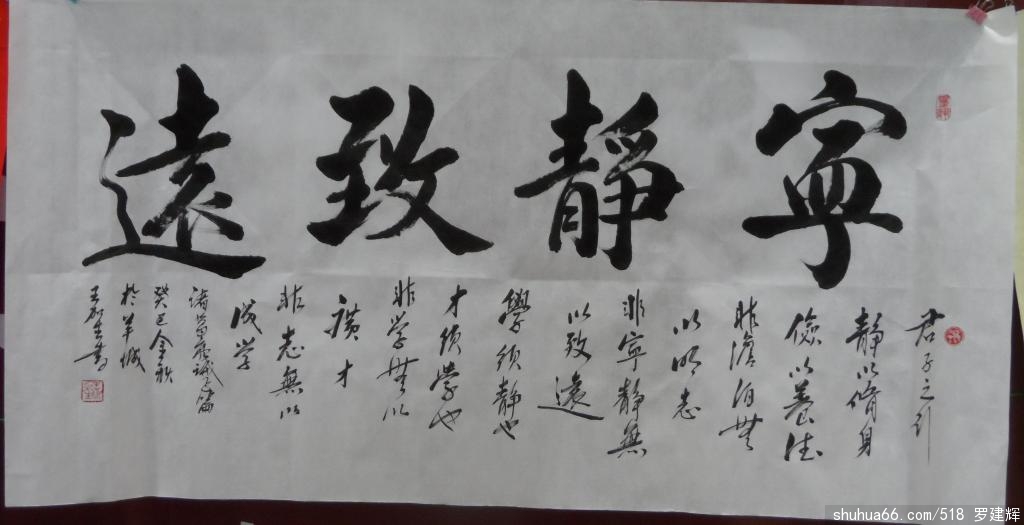 寧靜致遠
君子之行
靜以脩身
儉以養德
非澹泊無
以明志
非寧靜無
以致遠
學須靜也
才須學也
非学無以
廣才
非志無以
成学
諸葛亮誡子篇
癸巳金秋
於羊城
shuhua66.com/518 罗建辉